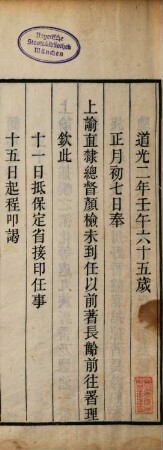 Bayerische
Staatsbibliothek
München
道光二年壬午六十五歲
正月初七日奉
上諭直隸總督顏檢未到任以前著長齡前往署理
欽此
十一日抵保定省接印任事
十五日起程叩謁